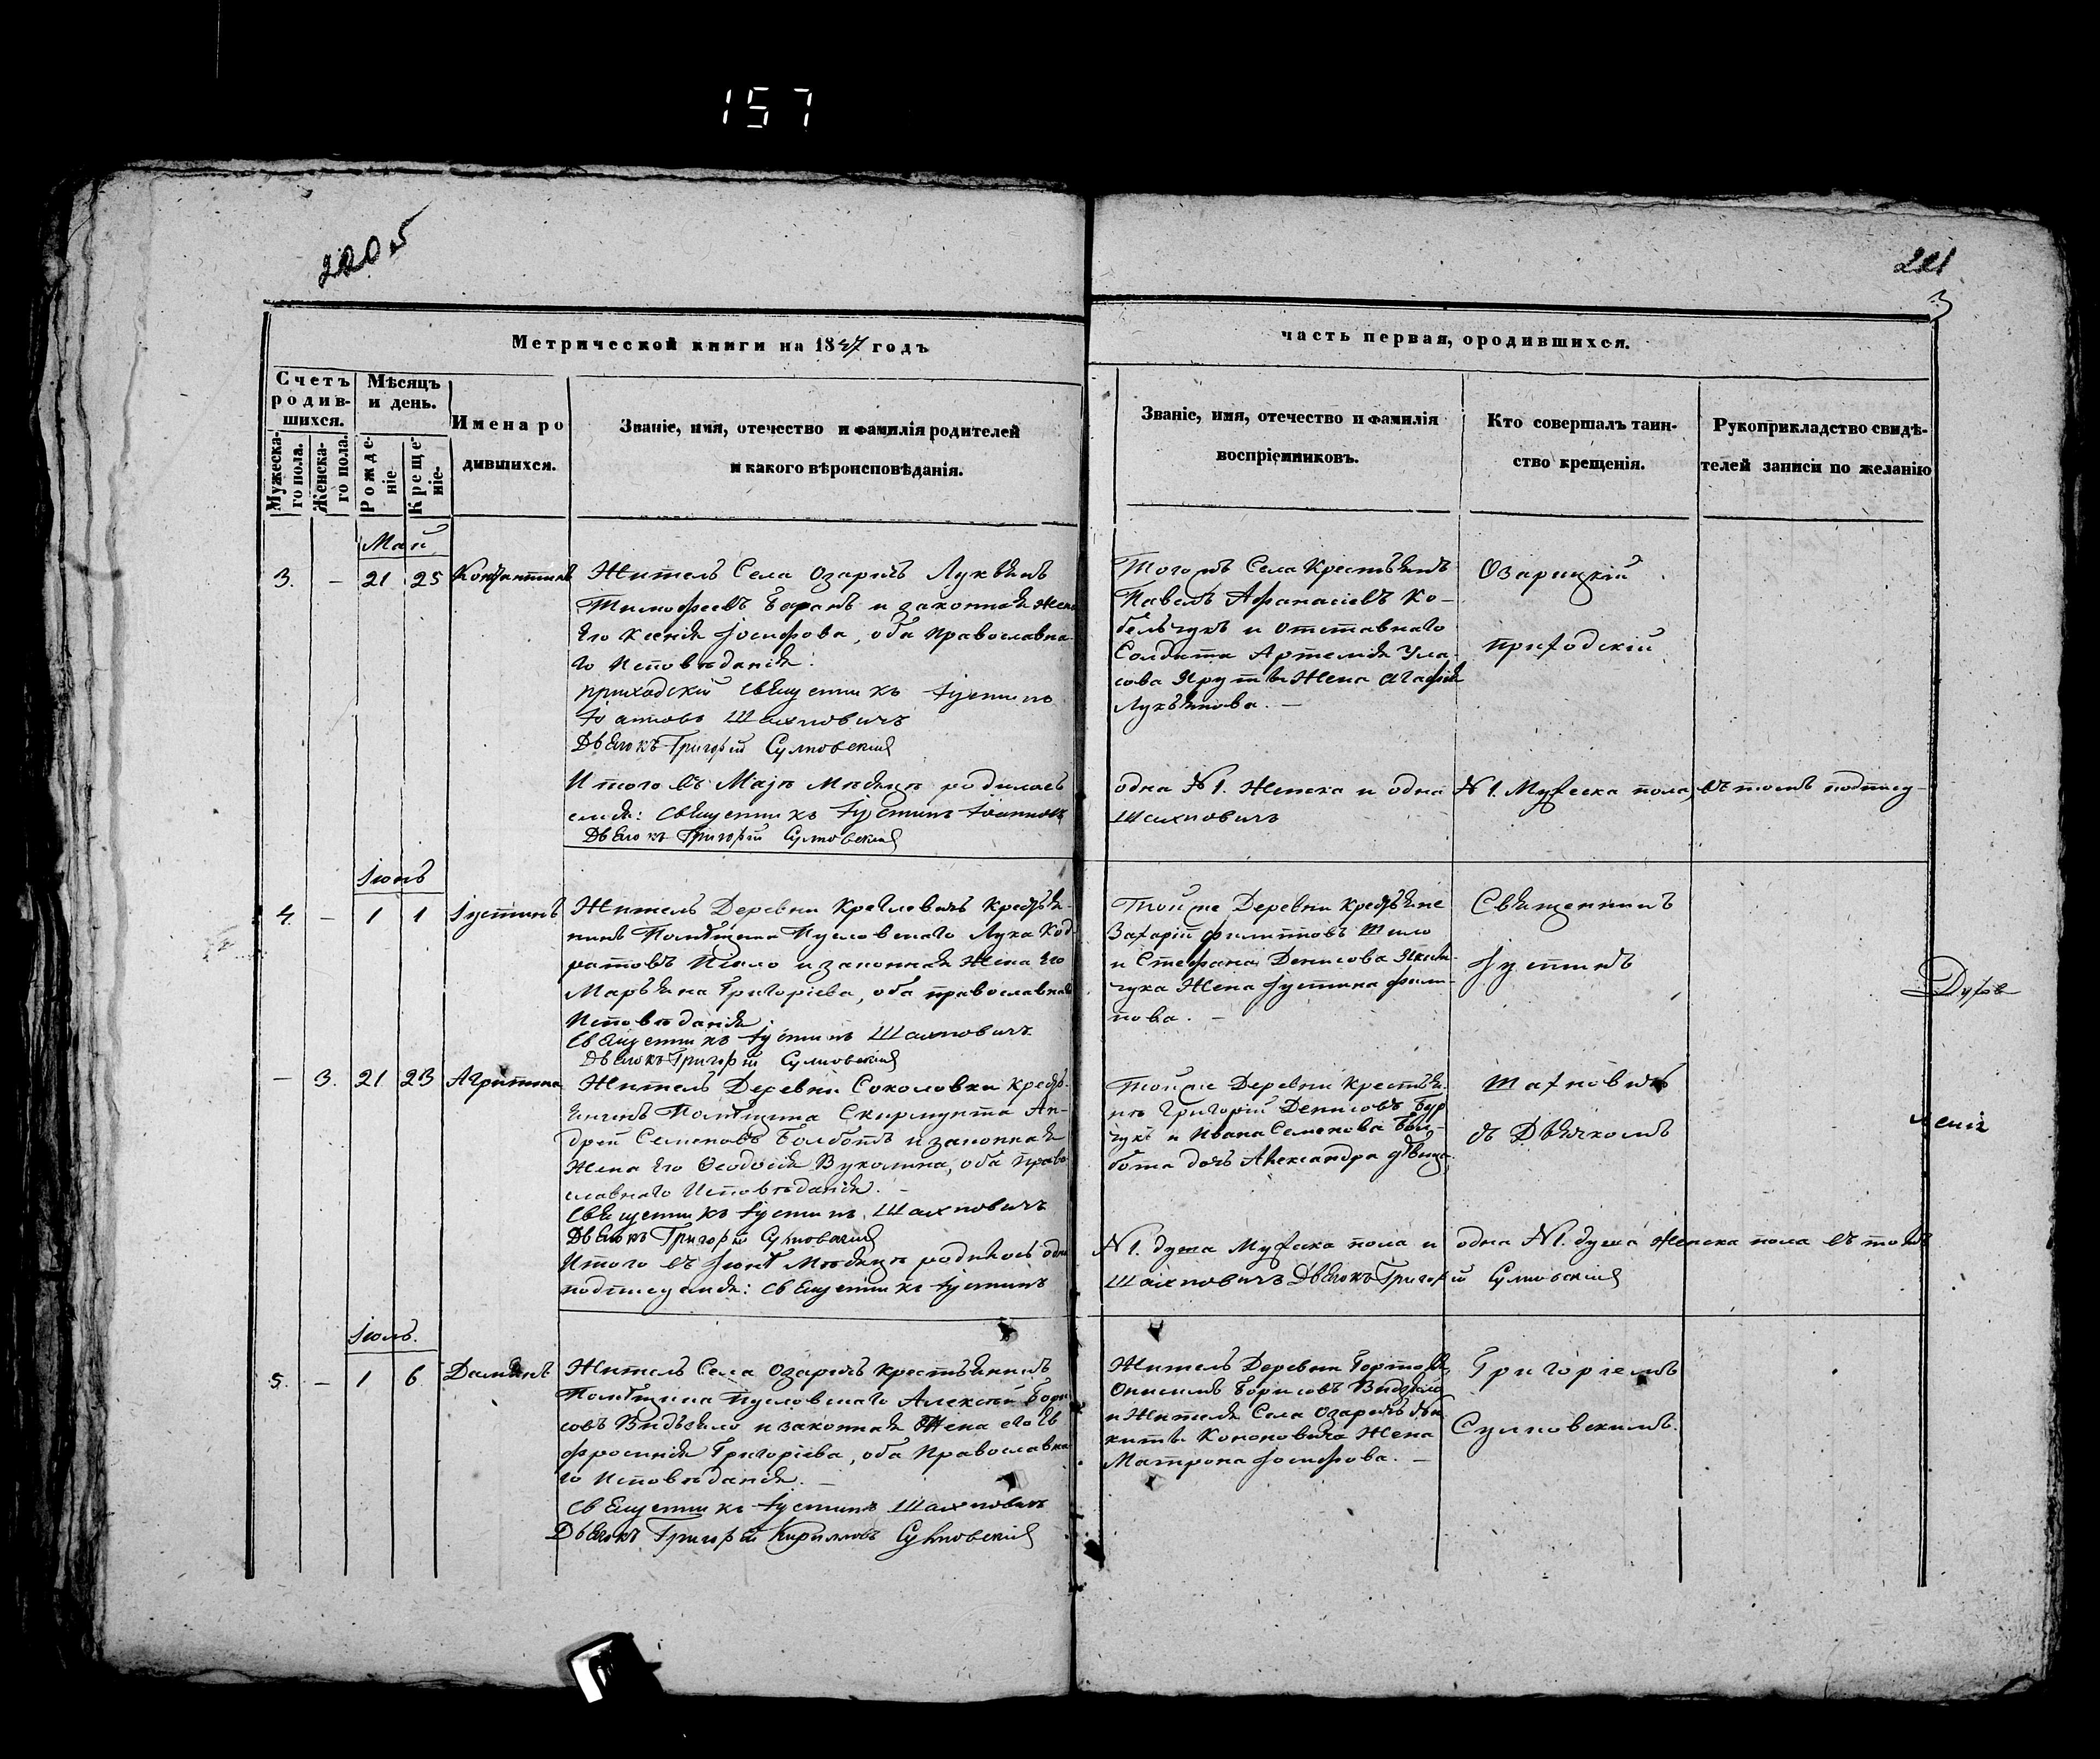 157
220 об
221
3
Метрической книги на 1847 годъ
часть первая, ородившихся.
Счетъ родив-шихся.
Мужеска-го пола.
Женска-го пола.
Мѣсяцъ и день.
Рожде-ніе.
Креще-ніе.
Имена ро
дившихся.
Званіе, имя, отечество и фамилія родителей
и какого вѣроисповѣданія.
Званіе, имя, отечество и фамилія
воспріемниковъ.
Кто совершалъ таин-
ство крещенія.
Рукоприкладство свидѣ-
телей записи по желанію
Май
3. – 21 25 Константинъ
Житель Села Озаричъ Лукьянъ
Тимофеевъ Баранъ и законная жена
Его Ксенія Іосифова, оба православна-
го Исповѣданія.
приходскій священникъ Іустинъ
Іоанновъ Шахновичъ
Дьячокъ Григорій Сулковскій
Тогожъ Села Крестьянъ
Павелъ Афанасіевъ Ко-
бельчукъ и отставнаго
Солдата Артемія Ула-
сова Жена Агафія
Лукьянова. –
Озарицкій
приходскій
Итого въ Маѣ Мѣсяцѣ родилось
одна №1. Женска и одна №1. Мужеска пола, въ томъ подпису-
емся: священникъ Іустинъ Іоанновъ
Шахновичъ
Дьячокъ Григорій Сулковскій
Іюнь
4. – 1 1 Іустинъ
Житель Деревни Креглевичъ Крестья-
нинъ Помѣщика Пусловскаго Лука Код-
ратовъ Шило и законная Жена Его
Марьяна Григоріева, оба православнаго
Исповѣданія
Священникъ Іустинъ Шахновичъ
Дьячокъ Григорій Сулковскій
Той же Деревни Крестьяне
Захарій Филиповъ Шило
и Стефана Денисова
чука Жена Іустина Фили-
пова. –
Священникъ
Іустинъ
Духов
– 3. 21 23 Агрипина
Житель Деревни Соколовки Кресть-
янинъ Помѣщика Скирмунта Ан-
дрей Семеновъ Болботъ и законная
Жена Его Ѳеодосія Вуколина, оба Право-
славнаго Исповѣданія. –
Священникъ Іустинъ Шахновичъ
Дьячокъ Григорій Сулковскій
Той же Деревни Крестья-
нъ Григорій Денисовъ Бур
чукъ и Ивана Семенова Бол-
бота дочь Александра Дѣвица.
Шахновичъ
съ Дьячкомъ
Итого въ Іюнѣ Мѣсяцѣ родилось одна
№1. душа Мужеска пола и одна №1. душа Женска пола въ томъ
подписуемся: священникъ Іустинъ
Шахновичъ Дьячокъ Григорій Сулковскій
Іюль.
5. – 1 6 Даміянъ
Житель Села Озаричъ Крестьянинъ
Помѣщика Пусловскаго Алексѣй Бори
совъ и законная Жена его Ев
фросинія Григоріева, оба Православна-
го Исповѣданія. –
Священникъ Іустинъ Шахновичъ
Дьячокъ Григорій Кириловъ Сулковскій
Житель Деревни
Онисимъ Борисовъ
и Жителя Села Озаричъ Ни
киты Кононовича Жена
Матрона Іосифова. –
Григоріемъ
Сулковскимъ.